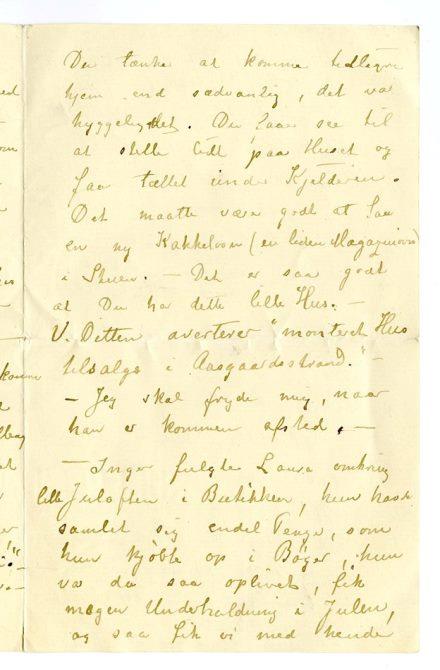 Du tænke at komme tidligere
hjem end sædvanlig, det var
hyggeligt det. Du faar see til
at stelle lidt paa Huset og
faa tættet under Kjelderen.
Det maatte være godt at faa
en ny Kakkelovn (en liden Magazinovn)
i Stuen. — Det er saa godt
at Du har dette lille Hus. —
V. Ditten averterer "monteret Hus
tilsalgs i Aasgaardsstrand." —
— Jeg skal fryde mig, naar
han er kommen afsted. —
— Inger fulgte Laura omkring
lille Juleaften i Butikken, hun havde
samlet sig endel Penge, som
hun kjøbte op i Bøger, hun
va da saa oplivet, fik
megen Underholdning i Julen,
og saa fik vi med hende